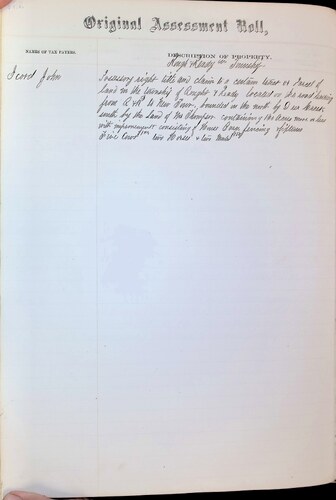 Original Assessment Roll,
NAMES OF TAX PAYERS.
DESCRIPTION OF PROPERTY.
Rough & Ready Township
John
Possessory right title and claim to a certain tract or Parcel of
Land in the township of Rough & Ready located on the road leading
from R & R to New Town, bounded on the north by Deer Creek
south by the Land of Mr Thompson containing 160 Acres more or less
with improvements consisting of House Barn fencing & fixtures
Five Cows two Horses & two